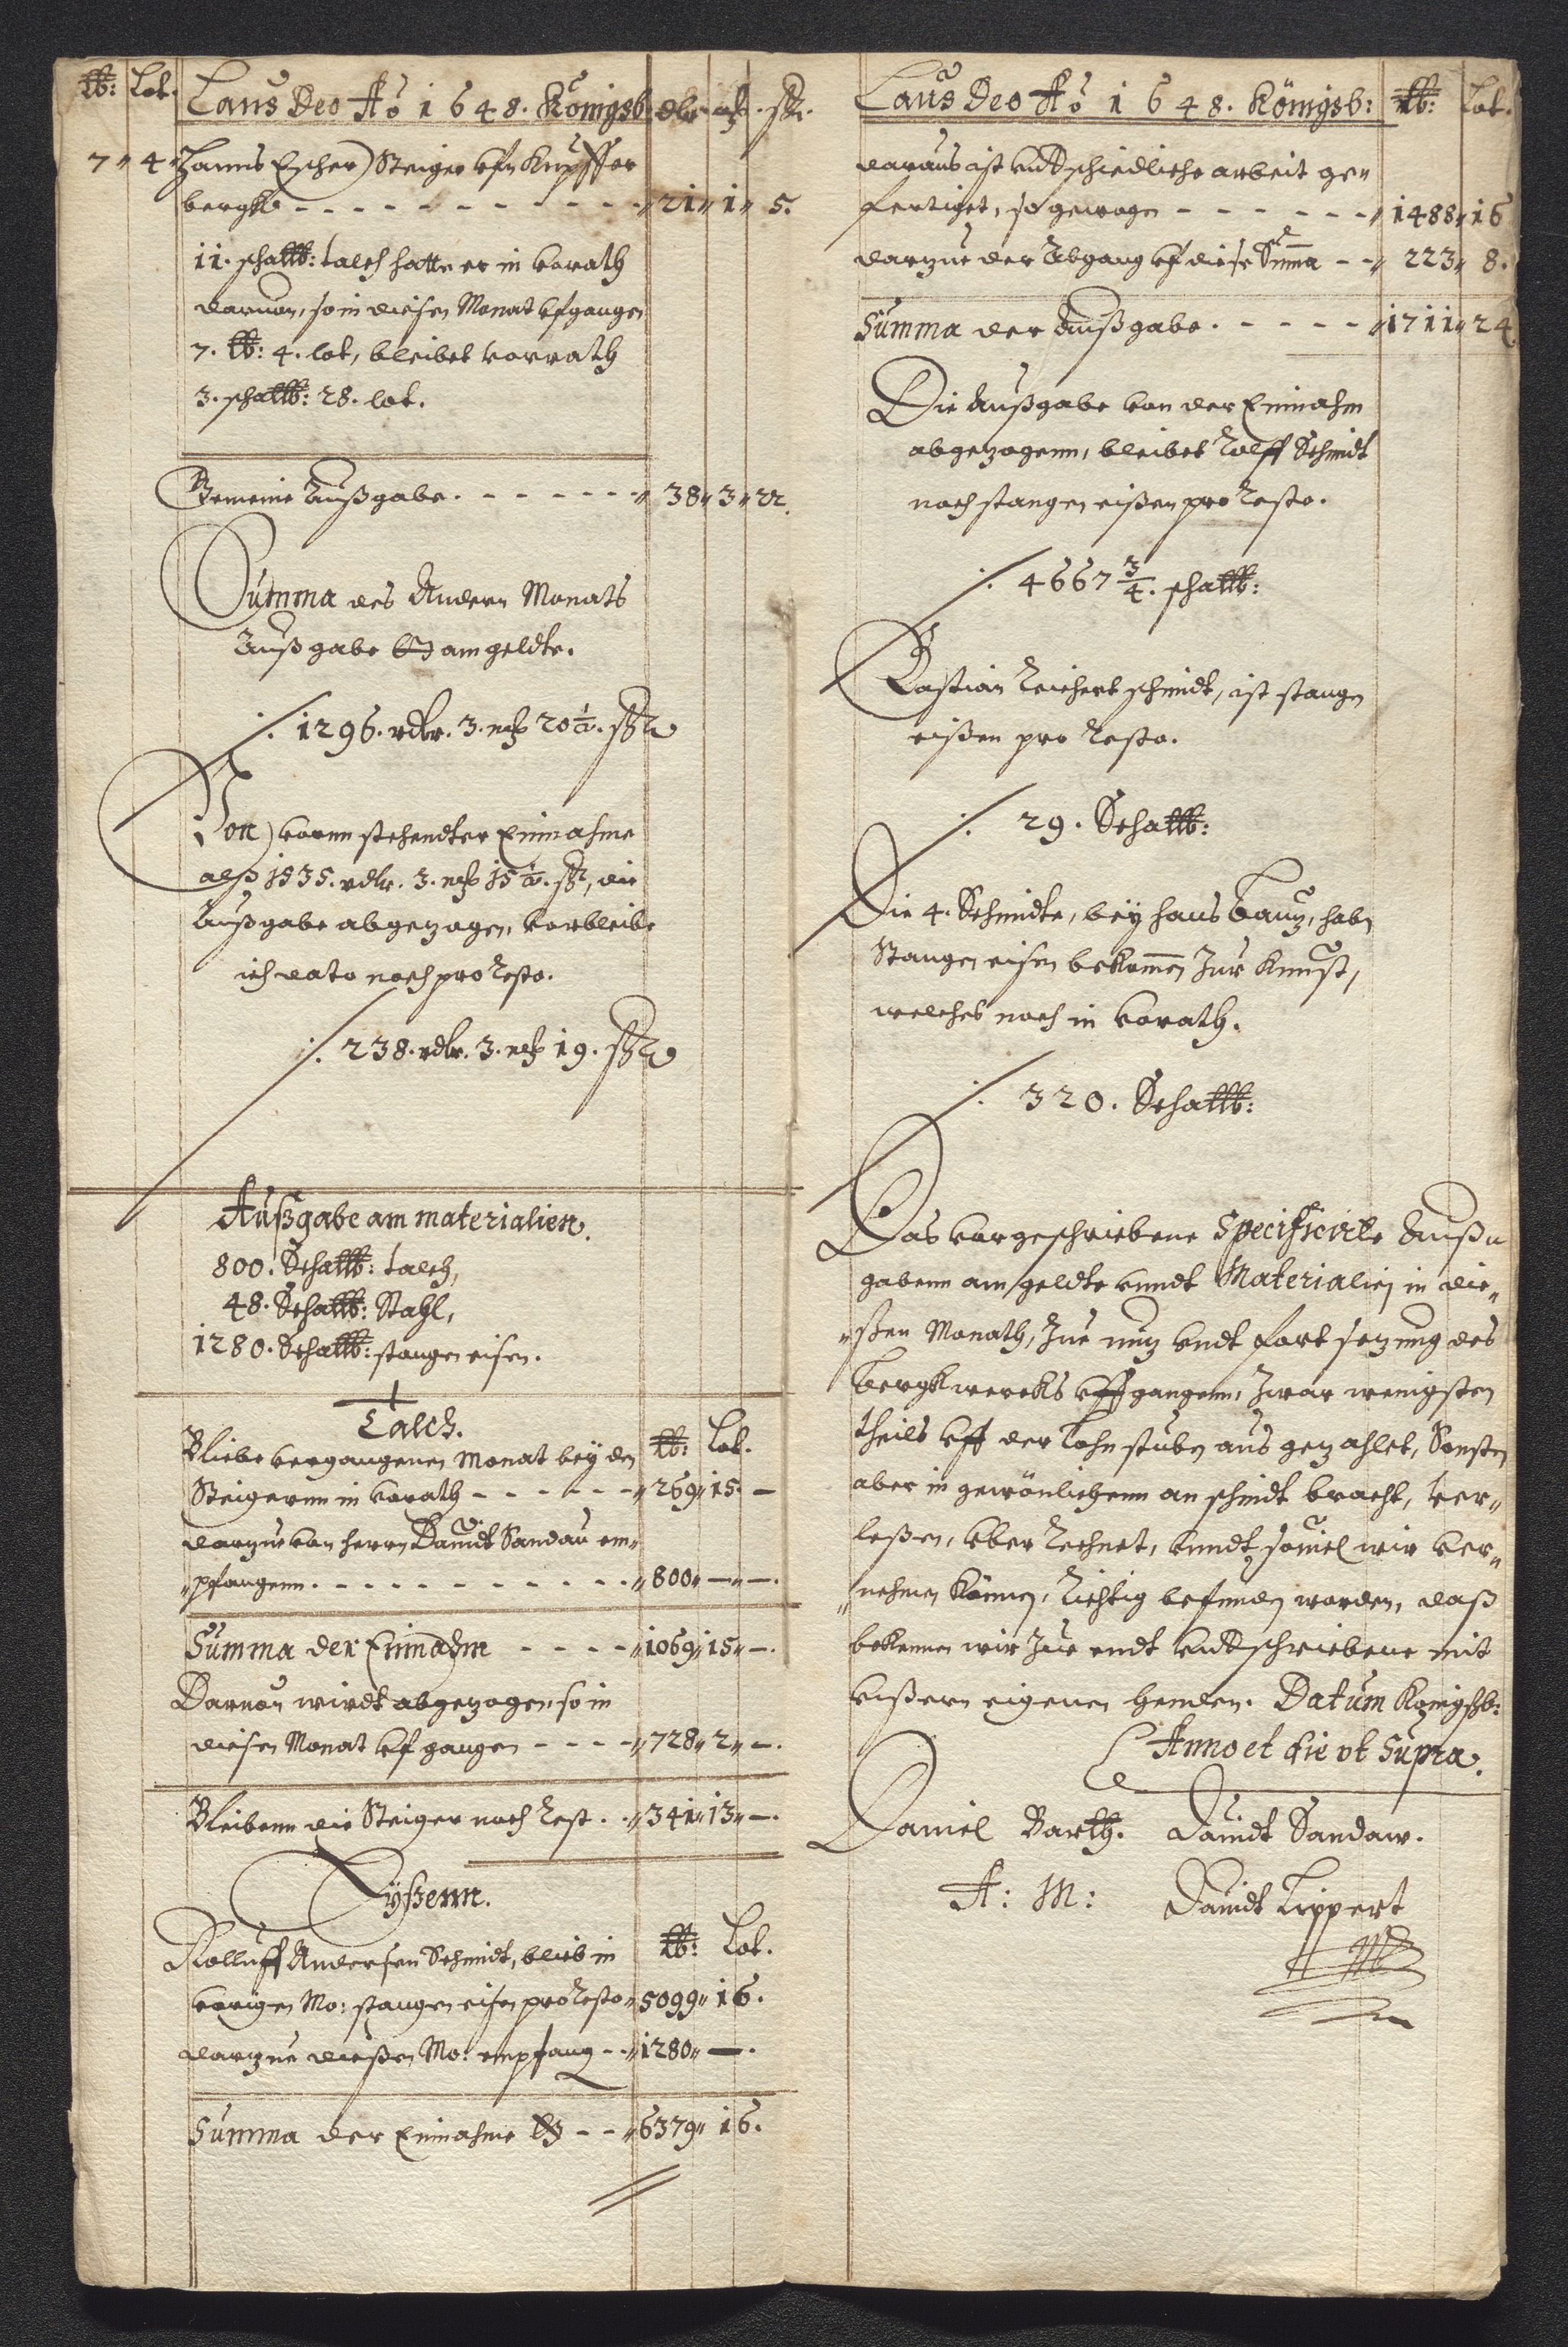 ℔: Lot. Laus Deo Aō 1648. Königsb: dlr ort. ß.
7 " 4 " Hanns Escher) Steiger vfn Kupffer
bergk - - - " 21 " 1 " 5.
11. scha℔: talch hatte er in vorath
daruon, so in diesen Monat vfgangen
7. ℔: 4. lot, bleibet vorrath
3. scha℔: 28. lot.
Gemeine Außgabe. - - - " 38 " 3 " 22.
Summa des Andern Monats
Außgabe am geldte.
1296. rdlr. 3. ort 20½. ß
Von) vorm stehendter Einnahme
alß 1535. rdlr. 3. ort 15½. ß, die
Außgabe abgezogen, verbleibe
ich dato noch pro Resto.
238. rdlr. 3. ort 19. ß
Außgabe am materialien.
800. Scha℔: talch,
48. Scha℔: Stahl,
1280. Scha℔: stangen eisen.
Talch.
℔: Lot.
Bliebe vergangenen Monat bey den
Steigernn in vorath - - - " 269 " 15. —
darzue von herrn Dauidt Sandau em"
"pfangenn. - - - " 800 " — " —.
Summa der Einnahm - - - " 1069 " 15 " —.
Daruon wirdt abgezogen, so in
diesen Monat vfgangen - - - " 728 " 2 " —.
Bleibenn die Steiger noch Rest. - " 341 " 13 " —.
Eyßenn.
℔: Lot.
Rolluff Andersen Schmidt, blieb in
vorigen Mo: stangen eisen pro Resto " 5099 " 16.
darzue dießen Mo: empfang - - " 1280 " —.
Summa der Einnahme - - " 6379 " 16.
Laus Deo Aō 1648. Königsb: ℔: Lot.
daraus ist vndtschiedliche arbeit ge"
fertiget, so gewogn - - - " 1488 " 16
darzue der Abgang vf diese Summa - - " 223 " 8.
Summa der Außgabe. - - - " 1711 " 24
Die Außgabe von der Einnahm
abgezogenn, bleibet Rolff Schmidt
noch stangen eißen pro Resto.
4667¾. scha℔:
Bastian Reichert schmidt, ist stangn
eißen pro Resto.
29. Scha℔:
Die 4. Schmidte, bey hans Bautz, habn
Stangen eisen bekomen Zur Kunst,
welches noch in vorath.
320. Scha℔:
Das vorgeschriebene Specificirte Auß"
gabenn am geldte vnndt Materialien in die"
"ßen Monath, Zue nutz vndt fortsetzung des
bergkwercks vffgangenn, Zwar wenigsten
theils vff der Lohnstuben ausgezahlet, Sonsten
aber in gewönlichenn anschnidt bracht, ver"
leßen, vberrechnet, vnndt souiel wir ver"
"nehmen können, Richtig befunden worden, daß
bekennen wir Zue endt vndtschriebene mit
vnßern eigenen henden. Datum Konigsb:
Anno et die vt Supra.
Daniel Barth. Dauidt Sandaw.
A: M: Dauidt Lippert